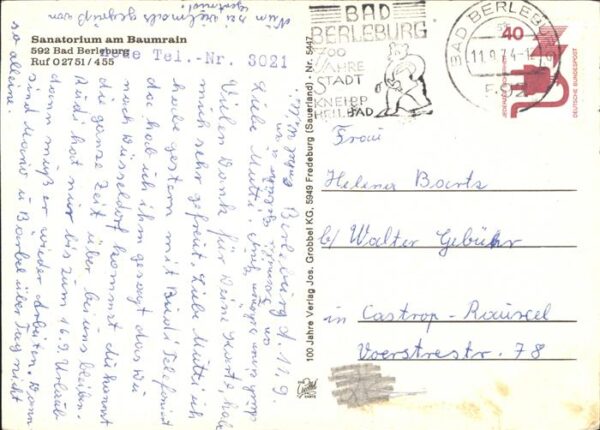 Sanatorium am Baumrain
592 Bad Berleburg
Ruf 02751/455
Neue Tel.-Nr. 8021
Berleburg d. 11.9.
Liebe Mutti!
Vielen Dank für Deine Karte, habe
mich sehr gefreut. Liebe Mutti ich
habe gestern mit Rudi Telefoniert
da hab ich ihm gesagt das Du
nach Düsseldorf kommst du kannst
die ganze Zeit über bei uns bleiben.
Rudi hat nur bis zum 16.9. Urlaub
dann muß er wieder Arbeiten. Dann
sind Mario u Bärbel über Tag nicht
so alleine.
Nun sei vielmals gegrüßt von
100 Jahre Verlag Jos. Grobbel KG, 5949 Fredeburg (Sauerland) - Nr. 5447
BAD
BERLEBURG
700
JAHRE
STADT
KNEIPP
HEILBAD
BAD BERLEBURG
11.9.74-12
592
40
JEDERZEIT SICHERHEIT
DEUTSCHE BUNDESPOST
Frau
Helene Bartz
b/ Walter Gebühr
in Castrop-Rauxel
Voerstestr. 78